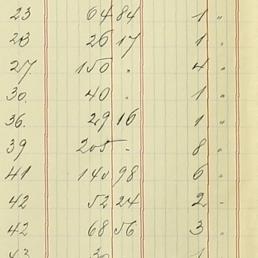 23 64 84 1 "
23 26 17 1 "
27. 150 " 4 "
30. 40 " 1 "
36. 29 16 1 "
39 205 - 8 "
41 140 98 6 "
42 52 24 2 -
42 68 56 3 "
43 30 1